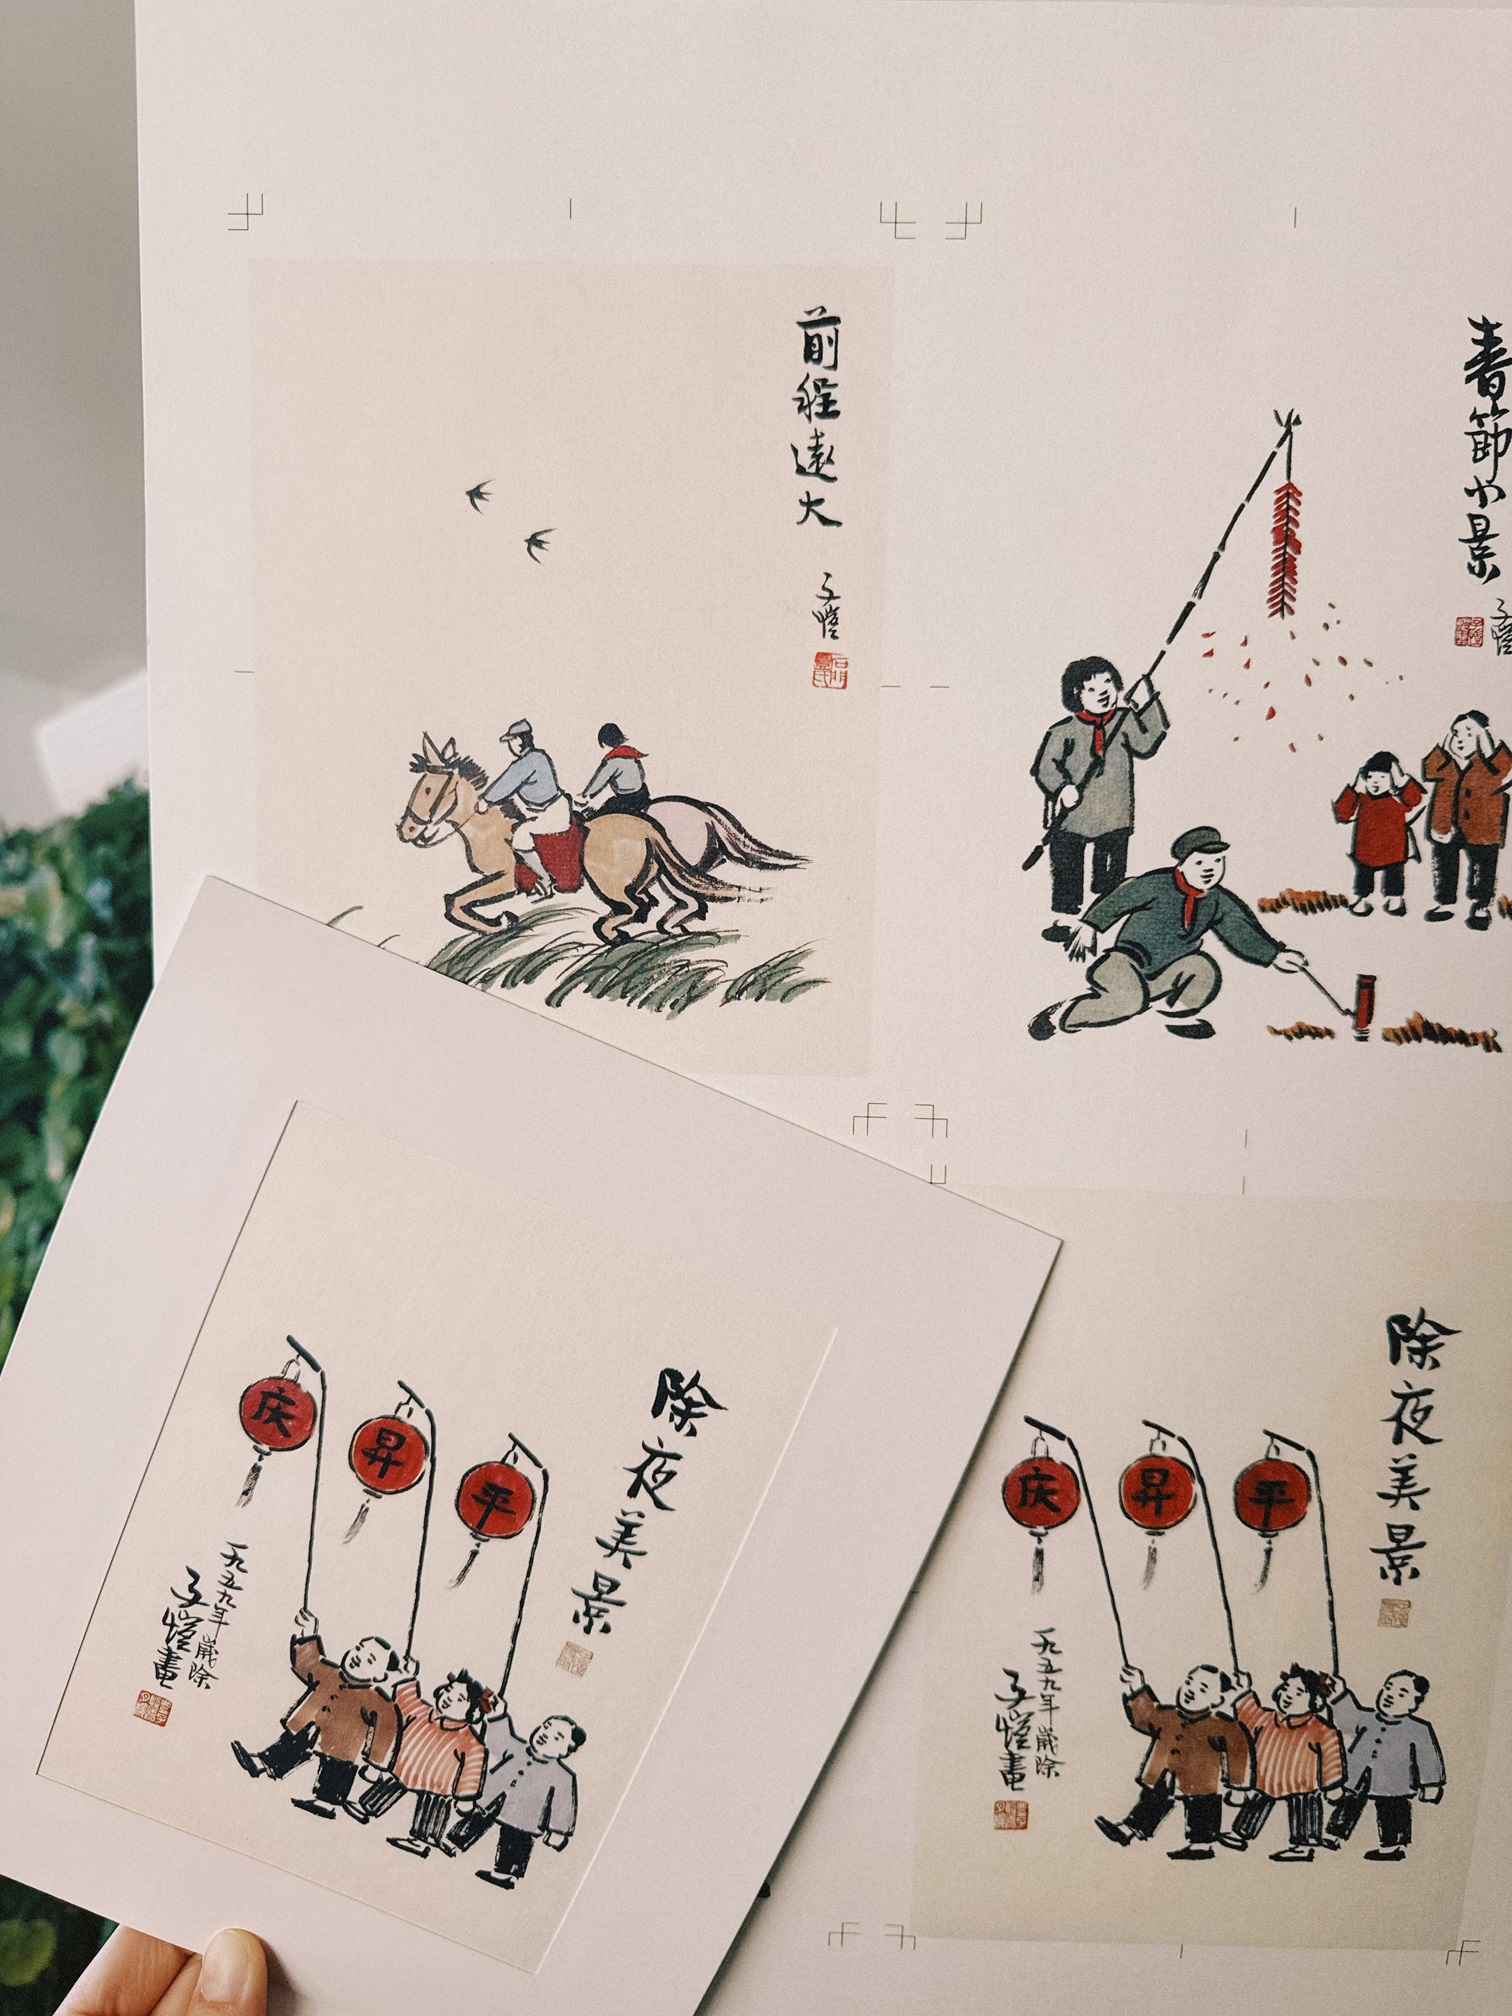 前程遠大
子愷
春節小景
子愷
除夜美景
庆
昇
平
一九五九年歲除
子愷畫
除夜美景
庆
昇
平
一九五九年歲除
子愷畫